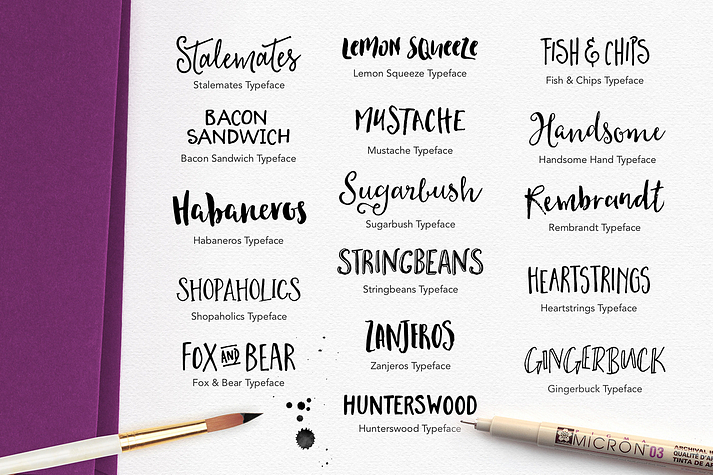 Stalemates
Stalemates Typeface
BACON
SANDWICH
Bacon Sandwich Typeface
Habaneros
Habaneros Typeface
SHOPAHOLICS
Shopaholics Typeface
FOX AND BEAR
Fox & Bear Typeface
LEMON SQUEEZE
Lemon Squeeze Typeface
MUSTACHE
Mustache Typeface
Sugarbush
Sugarbush Typeface
STRINGBEANS
Stringbeans Typeface
ZANJEROS
Zanjeros Typeface
HUNTERSWOOD
Hunterswood Typeface
FISH & CHIPS
Fish & Chips Typeface
Handsome
Handsome Hand Typeface
Rembrandt
Rembrandt Typeface
HEARTSTRINGS
Heartstrings Typeface
GINGERBUCK
Gingerbuck Typeface
MICRON 03
ARCHIVAL
QUALITÉ
TINTA DE